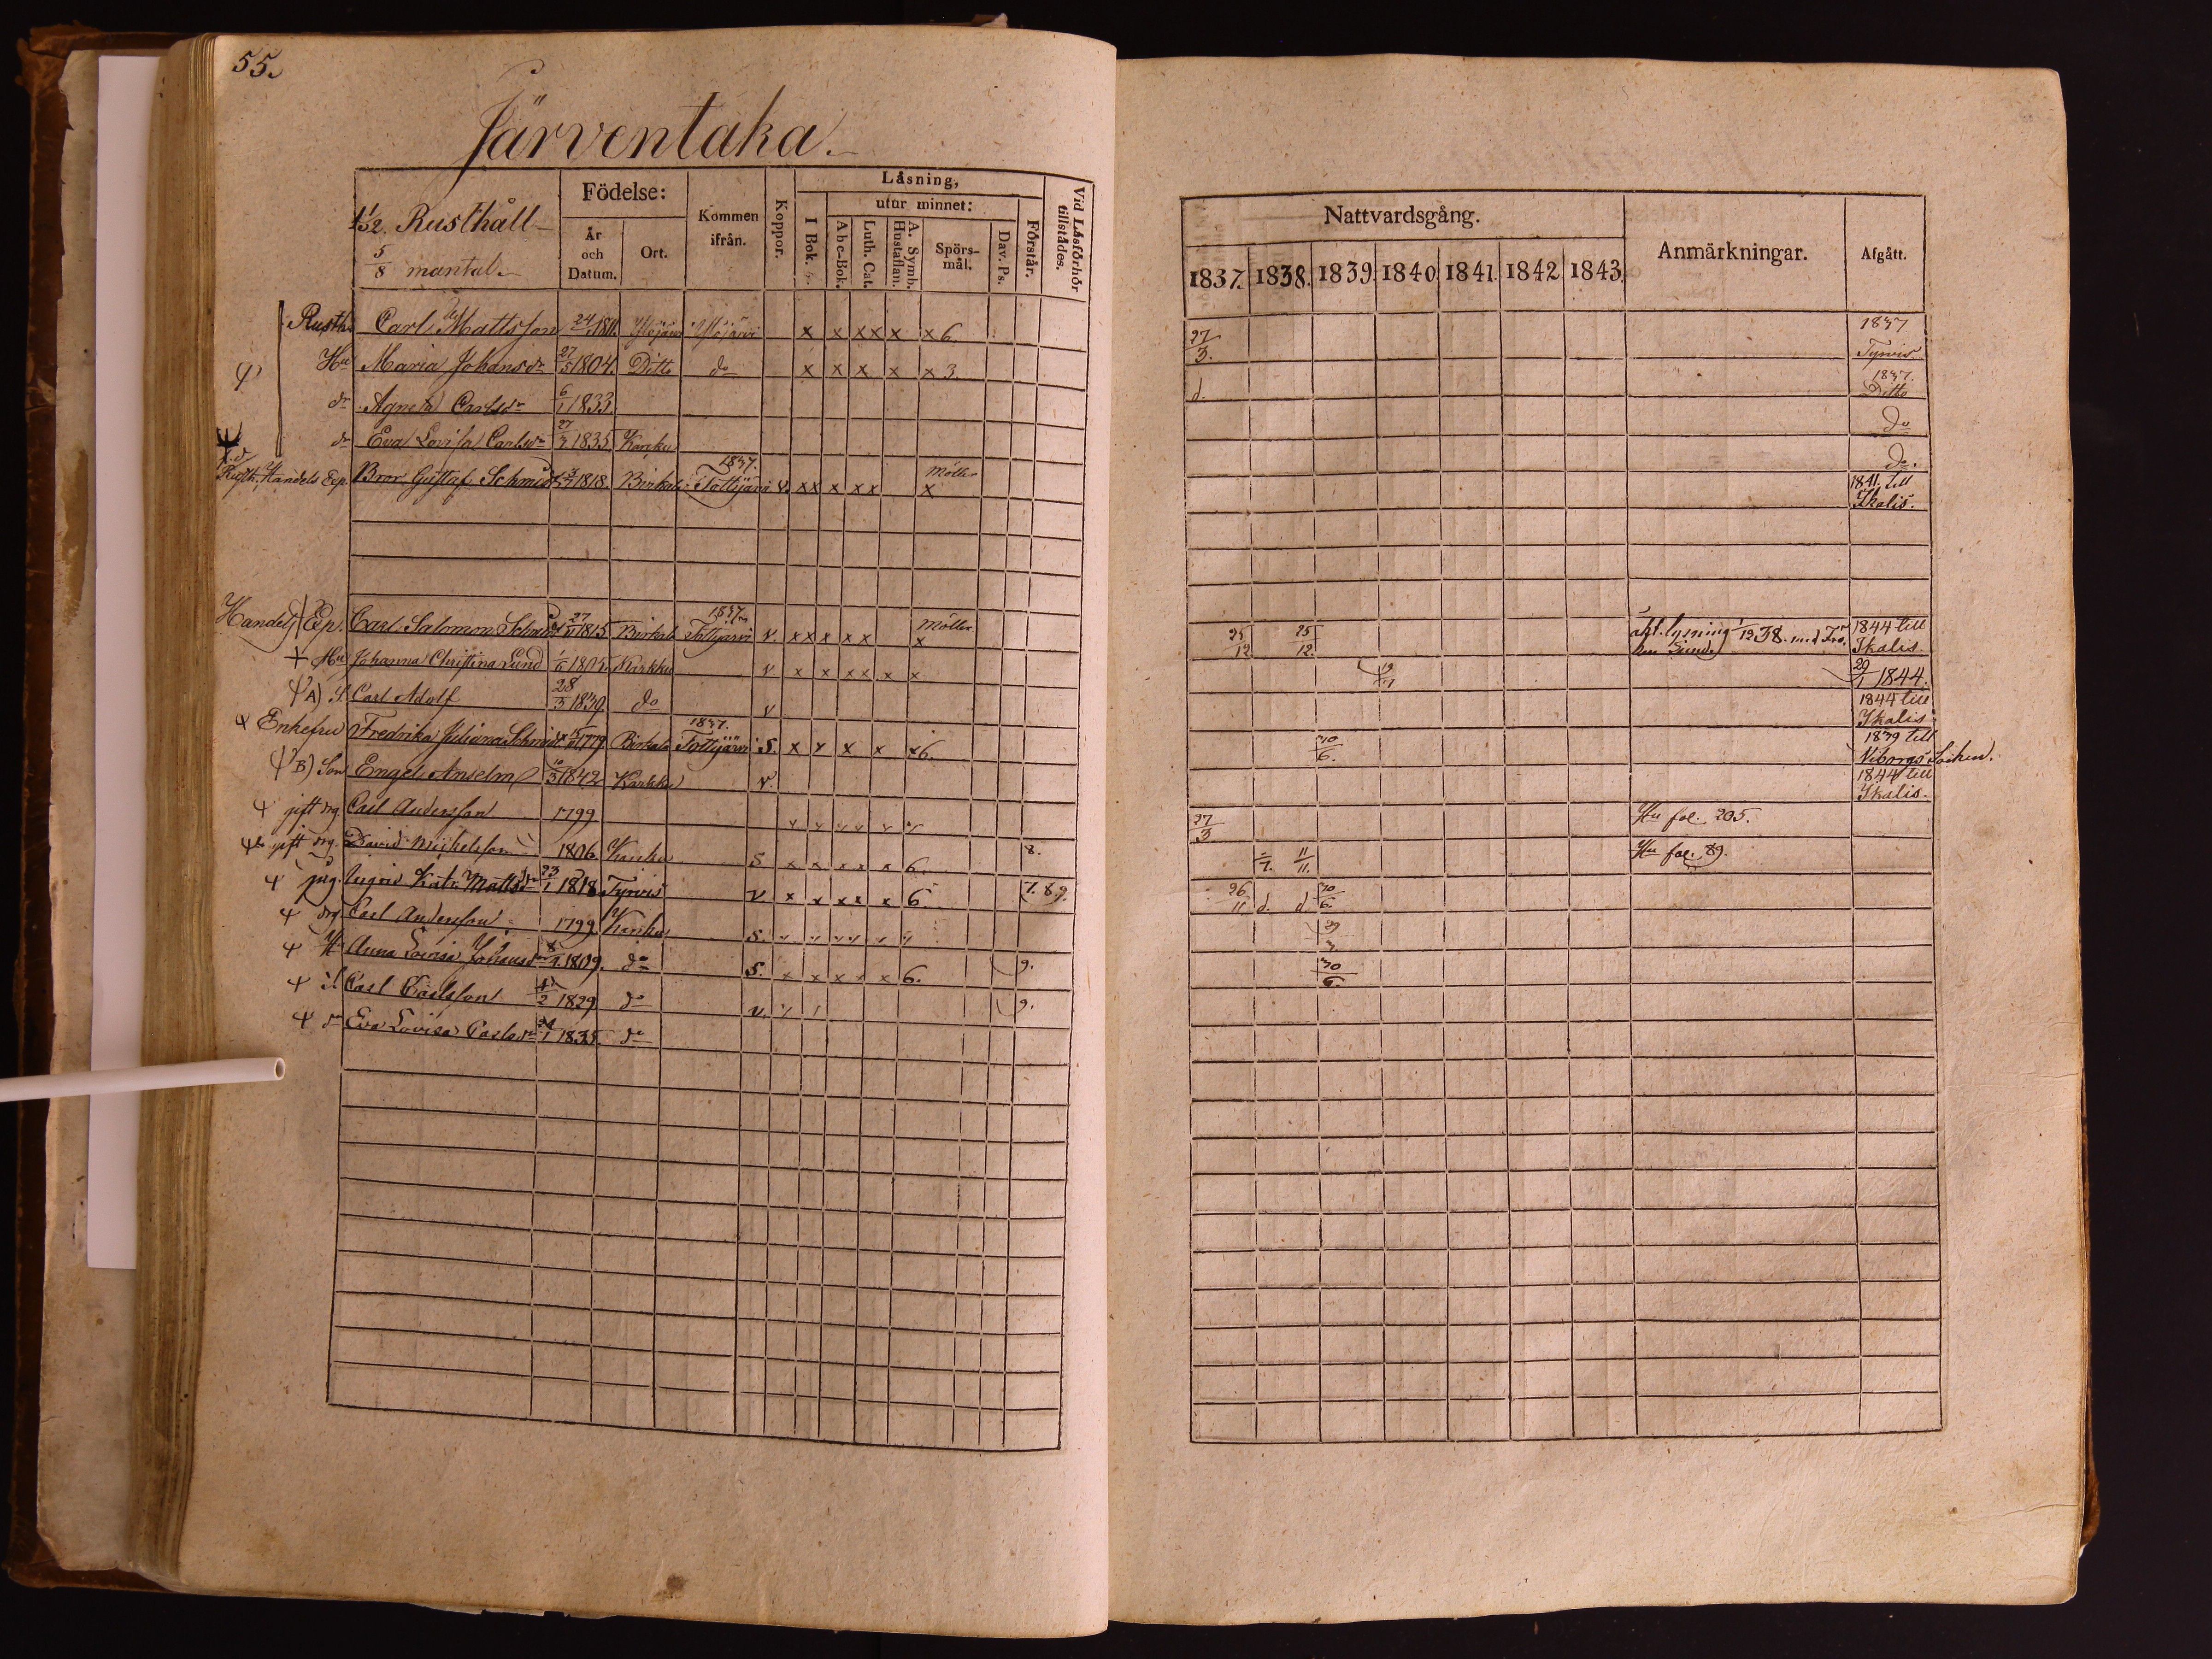 55.
Järventaka.
1/32. Rusthåll
5/8 mantal.
Födelse:
År och Datum.
Ort.
Kommen ifrån.
Koppor.
Läsning,
I Bok.
utur minnet:
Abc-Bok.
Luth. Cat.
A. Symb. Hustaflan.
Spörs-mål.
Dav. Ps.
Förstår.
Vid Läsförhör tillstädes.
Rusth. Carl Mattsson 24 1811. x x x x x x 6.
Hu Maria Johansdr 27/5 1804. Ditto do x x x x x 3.
dr Agneta Carlsdr 6/1 1833
dr Eva Lovisa Carlsdr 27/3 1835 Karkku
Rusth. Handels Exp. Bror Gustaf Schmidt 1818. Birkala 1837. Tottijärvi v. x x x x x Möller x
Handels Exp. Carl Salomon Schmidt 27 1815 Birkala 1837. Tottijärvi v. x x x x x Möller x
+ Hu Johanna Christina Lund Karkku v x x x x x x
A) S. Carl Adolf 28/3 1839 do v
Enkefru Fredrika Juliana Schmidt 1779 Birkala 1837. Tottijärvi S. x x x x x 6.
B) Son Engel Anselm 10/3 1842 Karkku v.
gift drg. Carl Andersson 1799
gift drg. David Michelsson 1806 Karkku S x x x x x 6. 8.
pig. Katr. Mattsdr 23/1 1818 Tyrvis v x x x x x 6. 7. 8 9.
drg Carl Andersson 1799 Karkku S.
H Anna Lovisa Johansdr 8 1809. do S. x x x x x 6. 9.
S. Carl Carlsson 1829 do v. 9.
dr Eva Lovisa Carlsdr 1835. do
Nattvardsgång.
Anmärkningar.
Afgått.
1837. 1838. 1839. 1840. 1841. 1842 1843.
27/3. 1837 Tyrvis
d. 1837. Ditto
do
do.
1841. till Ikalis.
25/12 25/12. lysning 1/12 38. med 1844 till Ikalis
29/1 1844.
1844 till Ikalis
30/6. 1839 till Viborgs Socken.
1844 till Ikalis.
27/3 Hu fol. 205.
11/11. Hu fol. 89.
26/11 d. d. 30/6
30/6